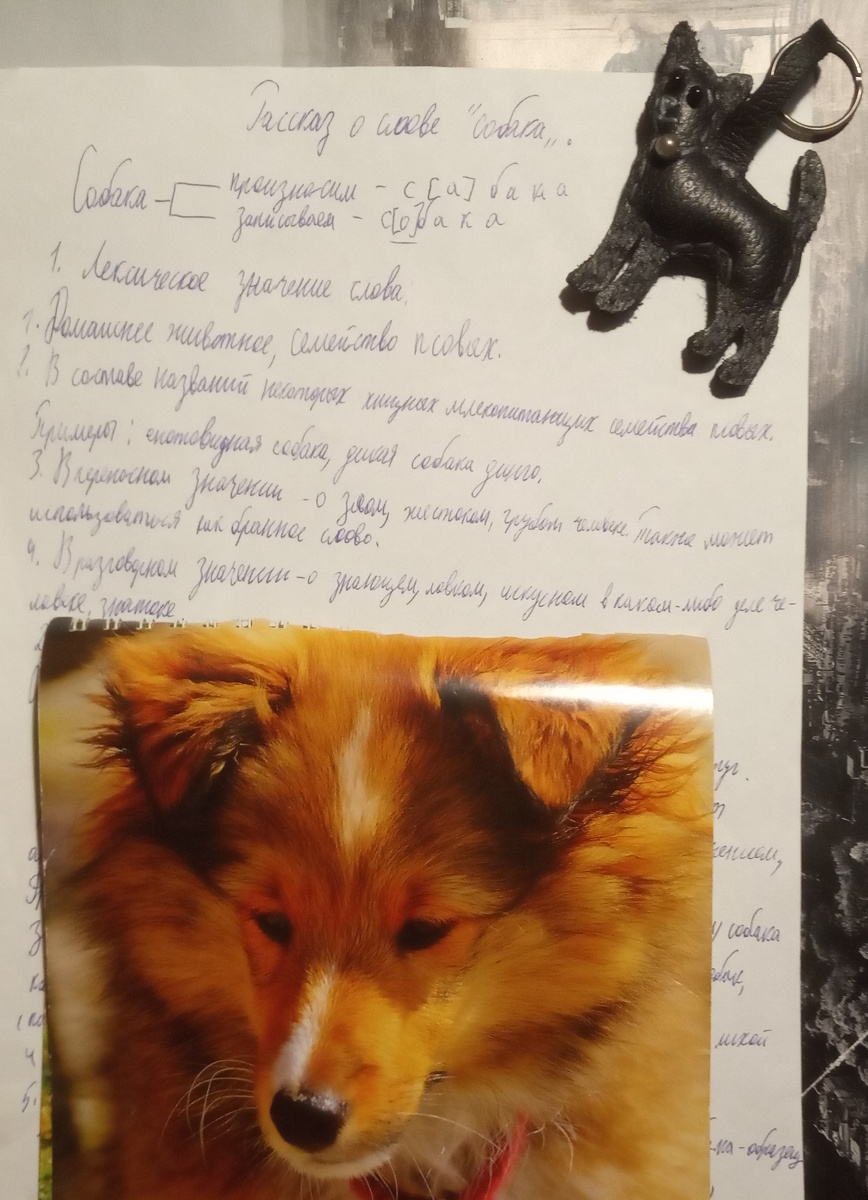 Рассказ о слове "собака„.
Собака – произносим – с [а] бака
записываем – с[о]бака
1. Лексическое значение слова:
1. Домашнее животное, семейство псовых.
2. В составе названий некоторых хищных млекопитающих семейства псовых.
Примеры: енотовидная собака, дикая собака динго.
3. В переносном значении – о злом, жестоком, грубом человеке. Также может
использоваться как бранное слово.
4. В разговорном значении – о знающем, ловком, искусном в каком-либо деле че-
ловеке, знатоке
собака
5.